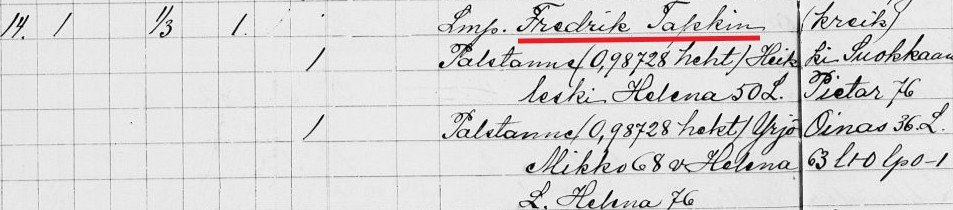 14. 1 1/3 1. Lmp. Fredrik Tapkin (kreik)
1 Palstanne (0,98728 heht) Heikki Suokkaan
leski Helena 50 L. Pietar 76
1 Palstanne (0,98728 hekt) Yrjö Oinas 36. L.
Mikko 68 v Helena 63 l+0 lp 0-1
L. Helena 76